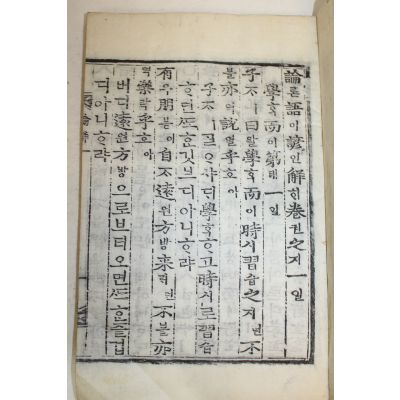 論론語어諺언解ᄒᆡ卷권之지一일
學ᄒᆞᆨ而이第뎨一일
子ᄌᆞㅣ曰왈學ᄒᆞᆨ而이時시習습之지면不
블亦역說열乎호아
子ᄌᆞㅣᄀᆞᆯᄋᆞ샤ᄃᆡ學ᄒᆞᆨᄒᆞ고時시로習습
ᄒᆞ면ᄯᅩᄒᆞᆫ깃브디아니ᄒᆞ랴
有유朋붕이自ᄌᆞ遠원方방來ᄅᆡ면不블亦
역樂락乎호아
버디遠원方방으로브터오면ᄯᅩᄒᆞᆫ즐겁
디아니ᄒᆞ랴